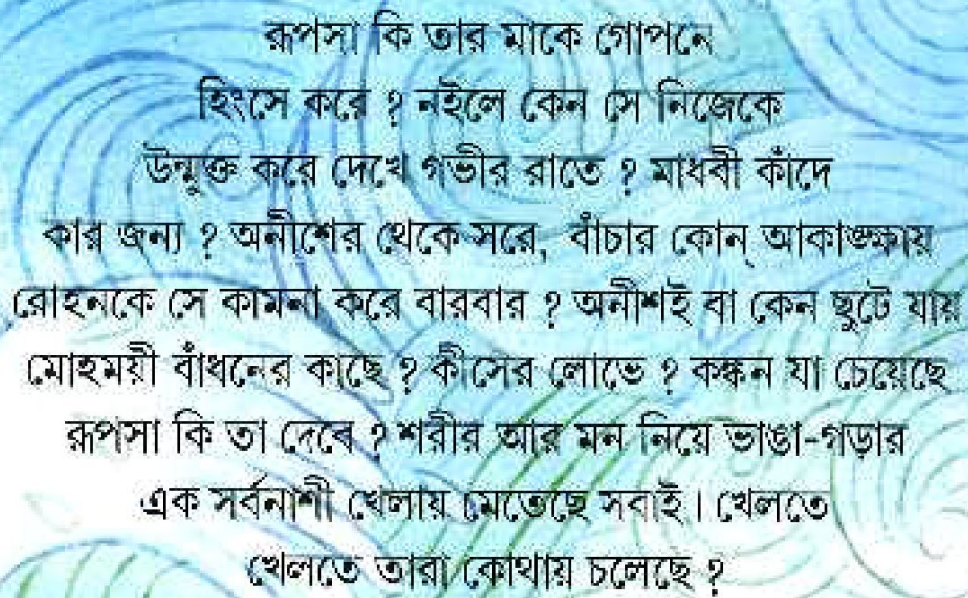 রূপসা কি তার মাকে গোপনে
হিংসে করে ? নইলে কেন সে নিজেকে
উন্মুক্ত করে দেখে গভীর রাতে ? মাধবী কাঁদে
কার জন্য ? অনীশের থেকে সরে, বাঁচার কোন্ আকাঙ্ক্ষায়
রোহনকে সে কামনা করে বারবার ? অনীশই বা কেন ছুটে যায়
মোহময়ী বাঁধনের কাছে ? কীসের লোভে ? কঙ্কন যা চেয়েছে
রূপসা কি তা দেবে ? শরীর আর মন নিয়ে ভাঙা-গড়ার
এক সর্বনাশী খেলায় মেতেছে সবাই। খেলতে
খেলতে তারা কোথায় চলেছে ?